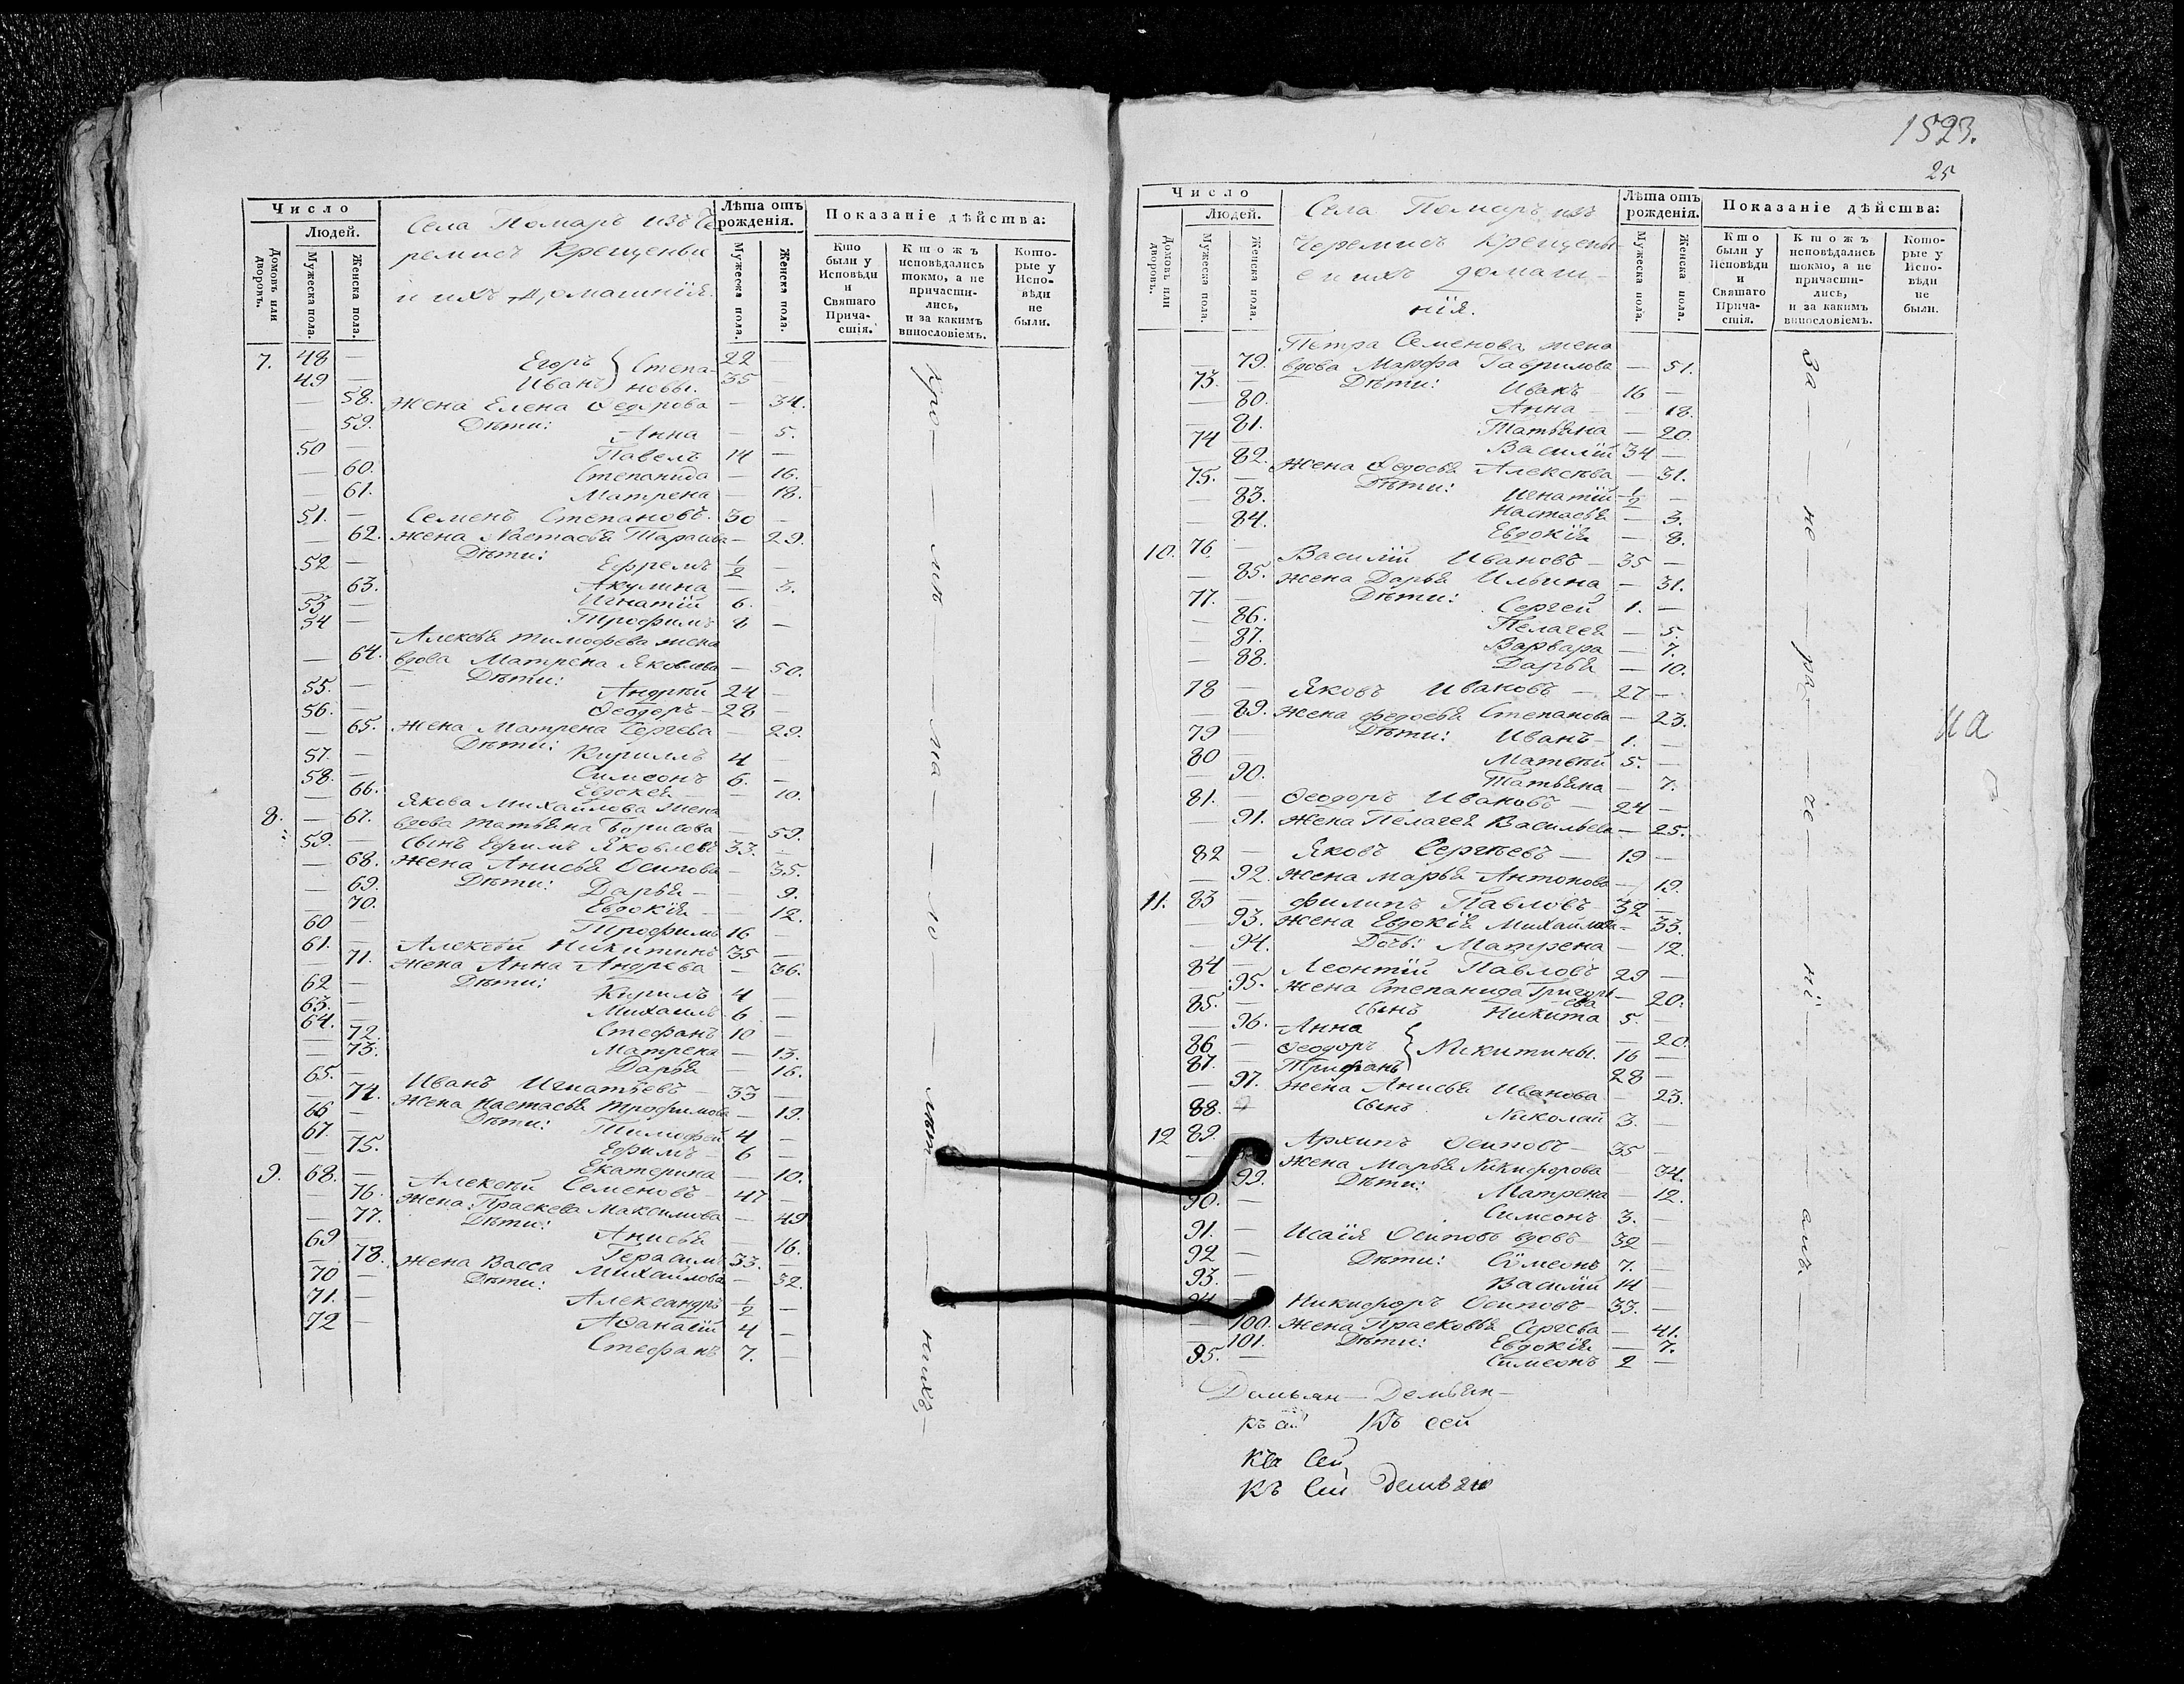 Число
Людей.
Домовъ или дворовъ.
Мужеска пола.
Женска пола.
Села Помаръ изъ Че
ремисъ Крещеныи
и ихъ домашнія.
Лѣта отъ рожденія.
Мужеска пола.
Женска пола.
Показаніе дѣйства:
Кто были у Исповѣди и Святаго Причастія.
Ктожъ исповѣдались токмо, а не причастились, и за какимъ винословіемъ.
Которые у Исповѣди не были.
7. 48 — Егоръ } Степа- 22
49 — Иванъ } новы. 35 —
— 58. Жена Елена Ѳедорова — 34.
— 59. Дѣти: Анна — 5.
50 — Павелъ 14 —
— 60. Степанида — 16.
— 61. Матрена — 18.
51. — Семенъ Степановъ. 30 —
— 62. Жена Настасья — 29.
52 — Дѣти: Ефремъ ½ —
— 63. Акулина — 3.
53 — Игнатій 6. —
54 — Трофимъ 8 —
Алексѣя Тимофѣева жена
— 64. вдова Матрена Яковлева — 50.
55. — Дѣти: Андрей 24 —
56. — Ѳеодоръ — 28 —
— 65. Жена Матрена Сергеева — 29.
57. — Дѣти: Кириллъ 4 —
58. — Симеонъ 6. —
— 66. Евдокея — 10.
Якова Михайлова жена
8. — 67. вдова Татьяна Борисова — 59.
59. — сынъ Ефимъ Яковлевъ 33. —
— 68. Жена Анисья Осипова — 35.
— 69. Дѣти: Дарья — 9.
— 70. Евдокія — 12.
60 — Трофимъ 16 —
61. — Алексѣй Никитинъ 35 —
— 71. Жена Анна Андреева — 36.
62 — Дѣти: Кирилъ 4
63. — Михаилъ 6 —
64. — Стефанъ 10 —
— 72. Матрена — 13.
— 73. Дарья — 16.
65. — Иванъ Игнатьевъ — 33 —
— 74. Жена Настасья Трофимова — 19.
66 — Дѣти: Тимофей 4 —
67. — Ефимъ — 6 —
— 75. Екатерина — 10.
9. 68. — Алексѣй Семеновъ 47 —
— 76. Жена: Праскева Максимова — 49
— 77. Дѣти: Анисья — 16.
69 — Герасимъ 33. —
— 78. Жена Васса Михайлова — 32.
70 — Дѣти: Александръ ½ —
71. — Аѳанасій 4 —
72 — Стефанъ 7. —
про — — ма — — лѣт — — нихъ —
1523.
25
Число
Людей.
Домовъ или дворовъ.
Мужеска пола.
Женска пола.
Села Помаръ изъ
Черемисъ крещены-
е и ихъ домаш-
нія.
Лѣта отъ рожденія.
Мужеска пола.
Женска пола.
Показаніе дѣйства:
Кто были у Исповѣди и Святаго Причастія.
Ктожъ исповѣдались токмо, а не причастились, и за какимъ винословіемъ.
Которые у Исповѣди не были.
Петра Семенова жена
— 79. вдова Марфа Гаврилова — 51.
73. — Дѣти: Иванъ 16 —
— 80. Анна — 18.
— 81. Татьяна — 20.
74 — Василій 34 —
— 82. Жена Ѳедосья Алексѣева — 31.
75. — Дѣти: Игнатій ½ —
— 83. Настасья — 3.
— 84. Евдокія — 8.
10. 76. — Василій Ивановъ — 35 —
— 85. Жена Дарья Ильина — 31.
77. — Дѣти: Сергей 1. —
— 86. Пелагея — 5.
— 87. Варвара — 7.
— 88. Дарья — 10.
78 — Яковъ Ивановъ — 27 —
— 89. Жена Федосья Степанова — 23.
79 — Дѣти: Иванъ 1. —
80 — Матвей 5. —
— 90. Татьяна — 7.
81. — Ѳеодоръ Ивановъ — 24 —
— 91. Жена Пелагея Васильева — 25.
82 — Яковъ Сергѣевъ — 19 —
— 92. Жена Марья Антонова — 19.
11. 83 — Филипъ Павловъ 32 —
— 93. Жена Евдокія Михайлова — 33.
— 94. Дочь: Матрена — 12.
84 — Леонтій Павловъ 29 —
— 95. Жена Степанида Григорьева — 20.
85. — сынъ Никита 5. —
— 96. Анна — 20.
86 — Ѳеодоръ } Никитины. 16 —
87. — Трифанъ 28 —
— 97. Жена Анисья Иванова — 23.
88. — сынъ Николай 3. —
12 89. — Архипъ Осиповъ — 35 —
Жена Марья Никифорова 34.
— 99. Дѣти: Матрена — 12.
90. — Симеонъ 3. —
91. — Исаія Осиповъ вдовъ 32 —
92 — Дѣти: Сѵмеонъ 7. —
93. — Василій 14 —
94 — Никифоръ Осиповъ 33. —
— 100. Жена Прасковья Сергеева — 41.
— 101. Дѣти: Евдокія — 7.
95. — Симеонъ 2 —
за — — не — — ра — — че — — ні — — емъ. —
на
Демьян — Демьян —
къ сей Къ сей
Къ Сей
Къ Сей Демьян